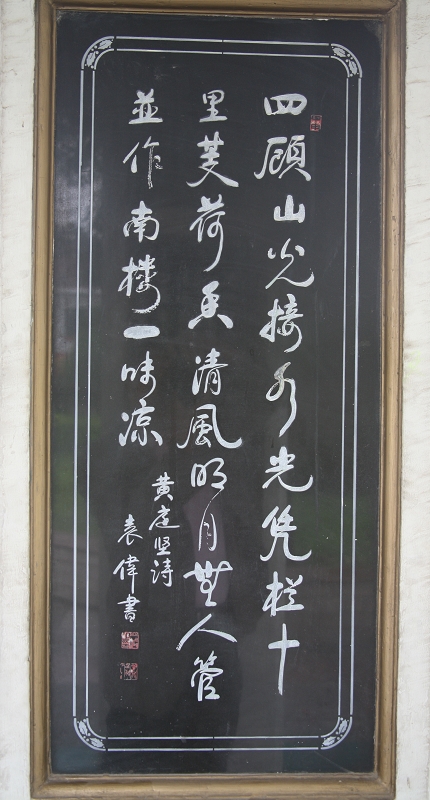 四顾山光接水光凭栏十
里芰荷香清風明月無人管
並作南楼一味凉
黄庭坚诗
袁偉書